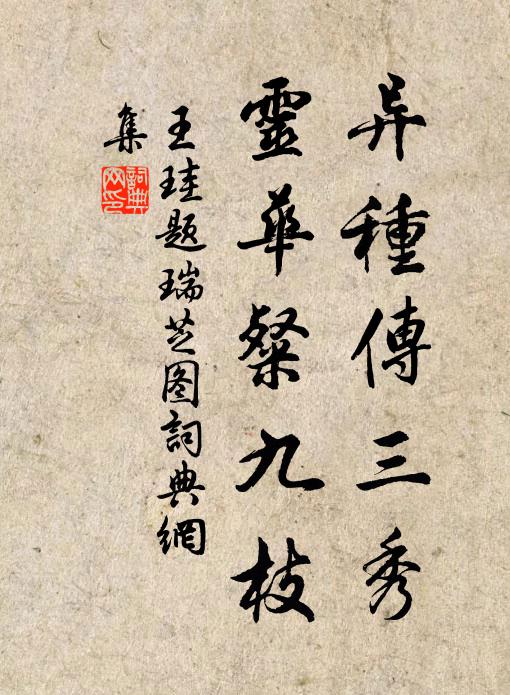 异種傳三秀
靈華粲九枝
王珪题瑞芝图詞典網
集
詞典网印